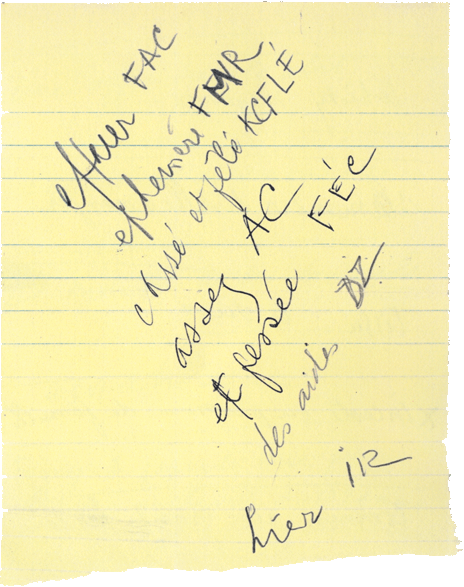 effacer FAC
ephemère FMR
cassé et fêlé KCFLÉ
assez AC
et fessée FÉC
des aides DZ
hier iR